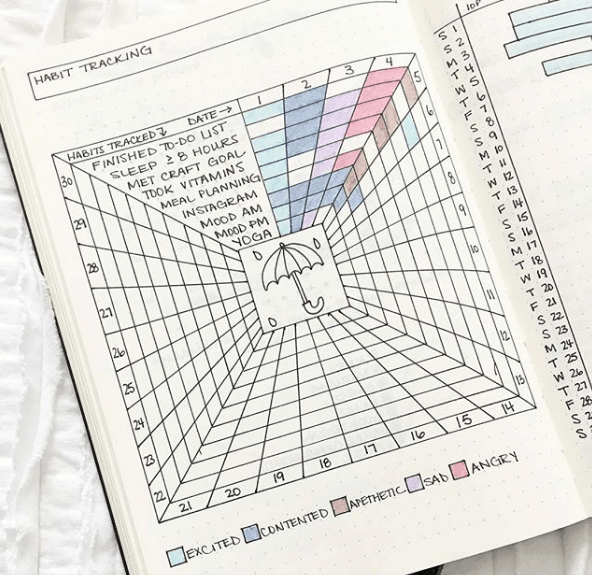 HABIT TRACKING
HABITS TRACKED↓ DATE→
FINISHED TO-DO LIST
SLEEP ≥ 8 HOURS
MET CRAFT GOAL
TOOK VITAMINS
MEAL PLANNING
INSTAGRAM
MOOD AM
MOOD PM
YOGA
1 2 3 4 5
6
7
8
9
10
11
12
13
14
15
16
17
18
19
20
21
22
23
24
25
26
27
28
29
30
EXCITED CONTENTED APETHETIC SAD ANGRY
10P
S 1
S 2
M 3
T 4
W 5
T 6
F 7
S 8
S 9
M 10
T 11
W 12
T 13
F 14
S 15
S 16
M 17
T 18
W 19
T 20
F 21
S 22
S 23
M 24
T 25
W 26
T 27
F 28
S
S